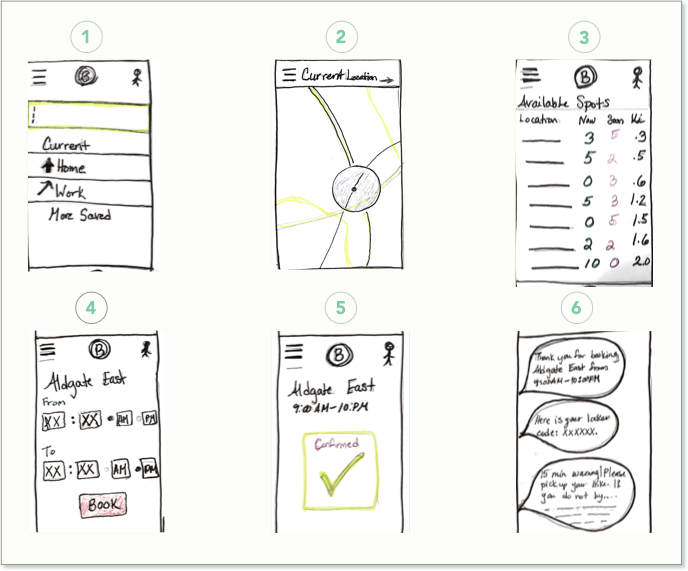 1
B
Current
Home
Work
More Saved
2
Current Location
3
B
Available Spots
Location Now Soon Ki.
3 5 .3
5 2 .5
0 3 .6
5 3 1.2
0 5 1.5
2 2 1.6
10 0 2.0
4
B
Aldgate East
From
XX : XX AM PM
To
XX : XX AM PM
BOOK
5
B
Aldgate East
9:00 AM - 10:PM
Confirmed
6
Thank you for booking
Aldgate East from
9:00AM-10:00PM
Here is your locker
code: XXXXXX.
15 min warning! Please
pick up your bike. If
you do not by....